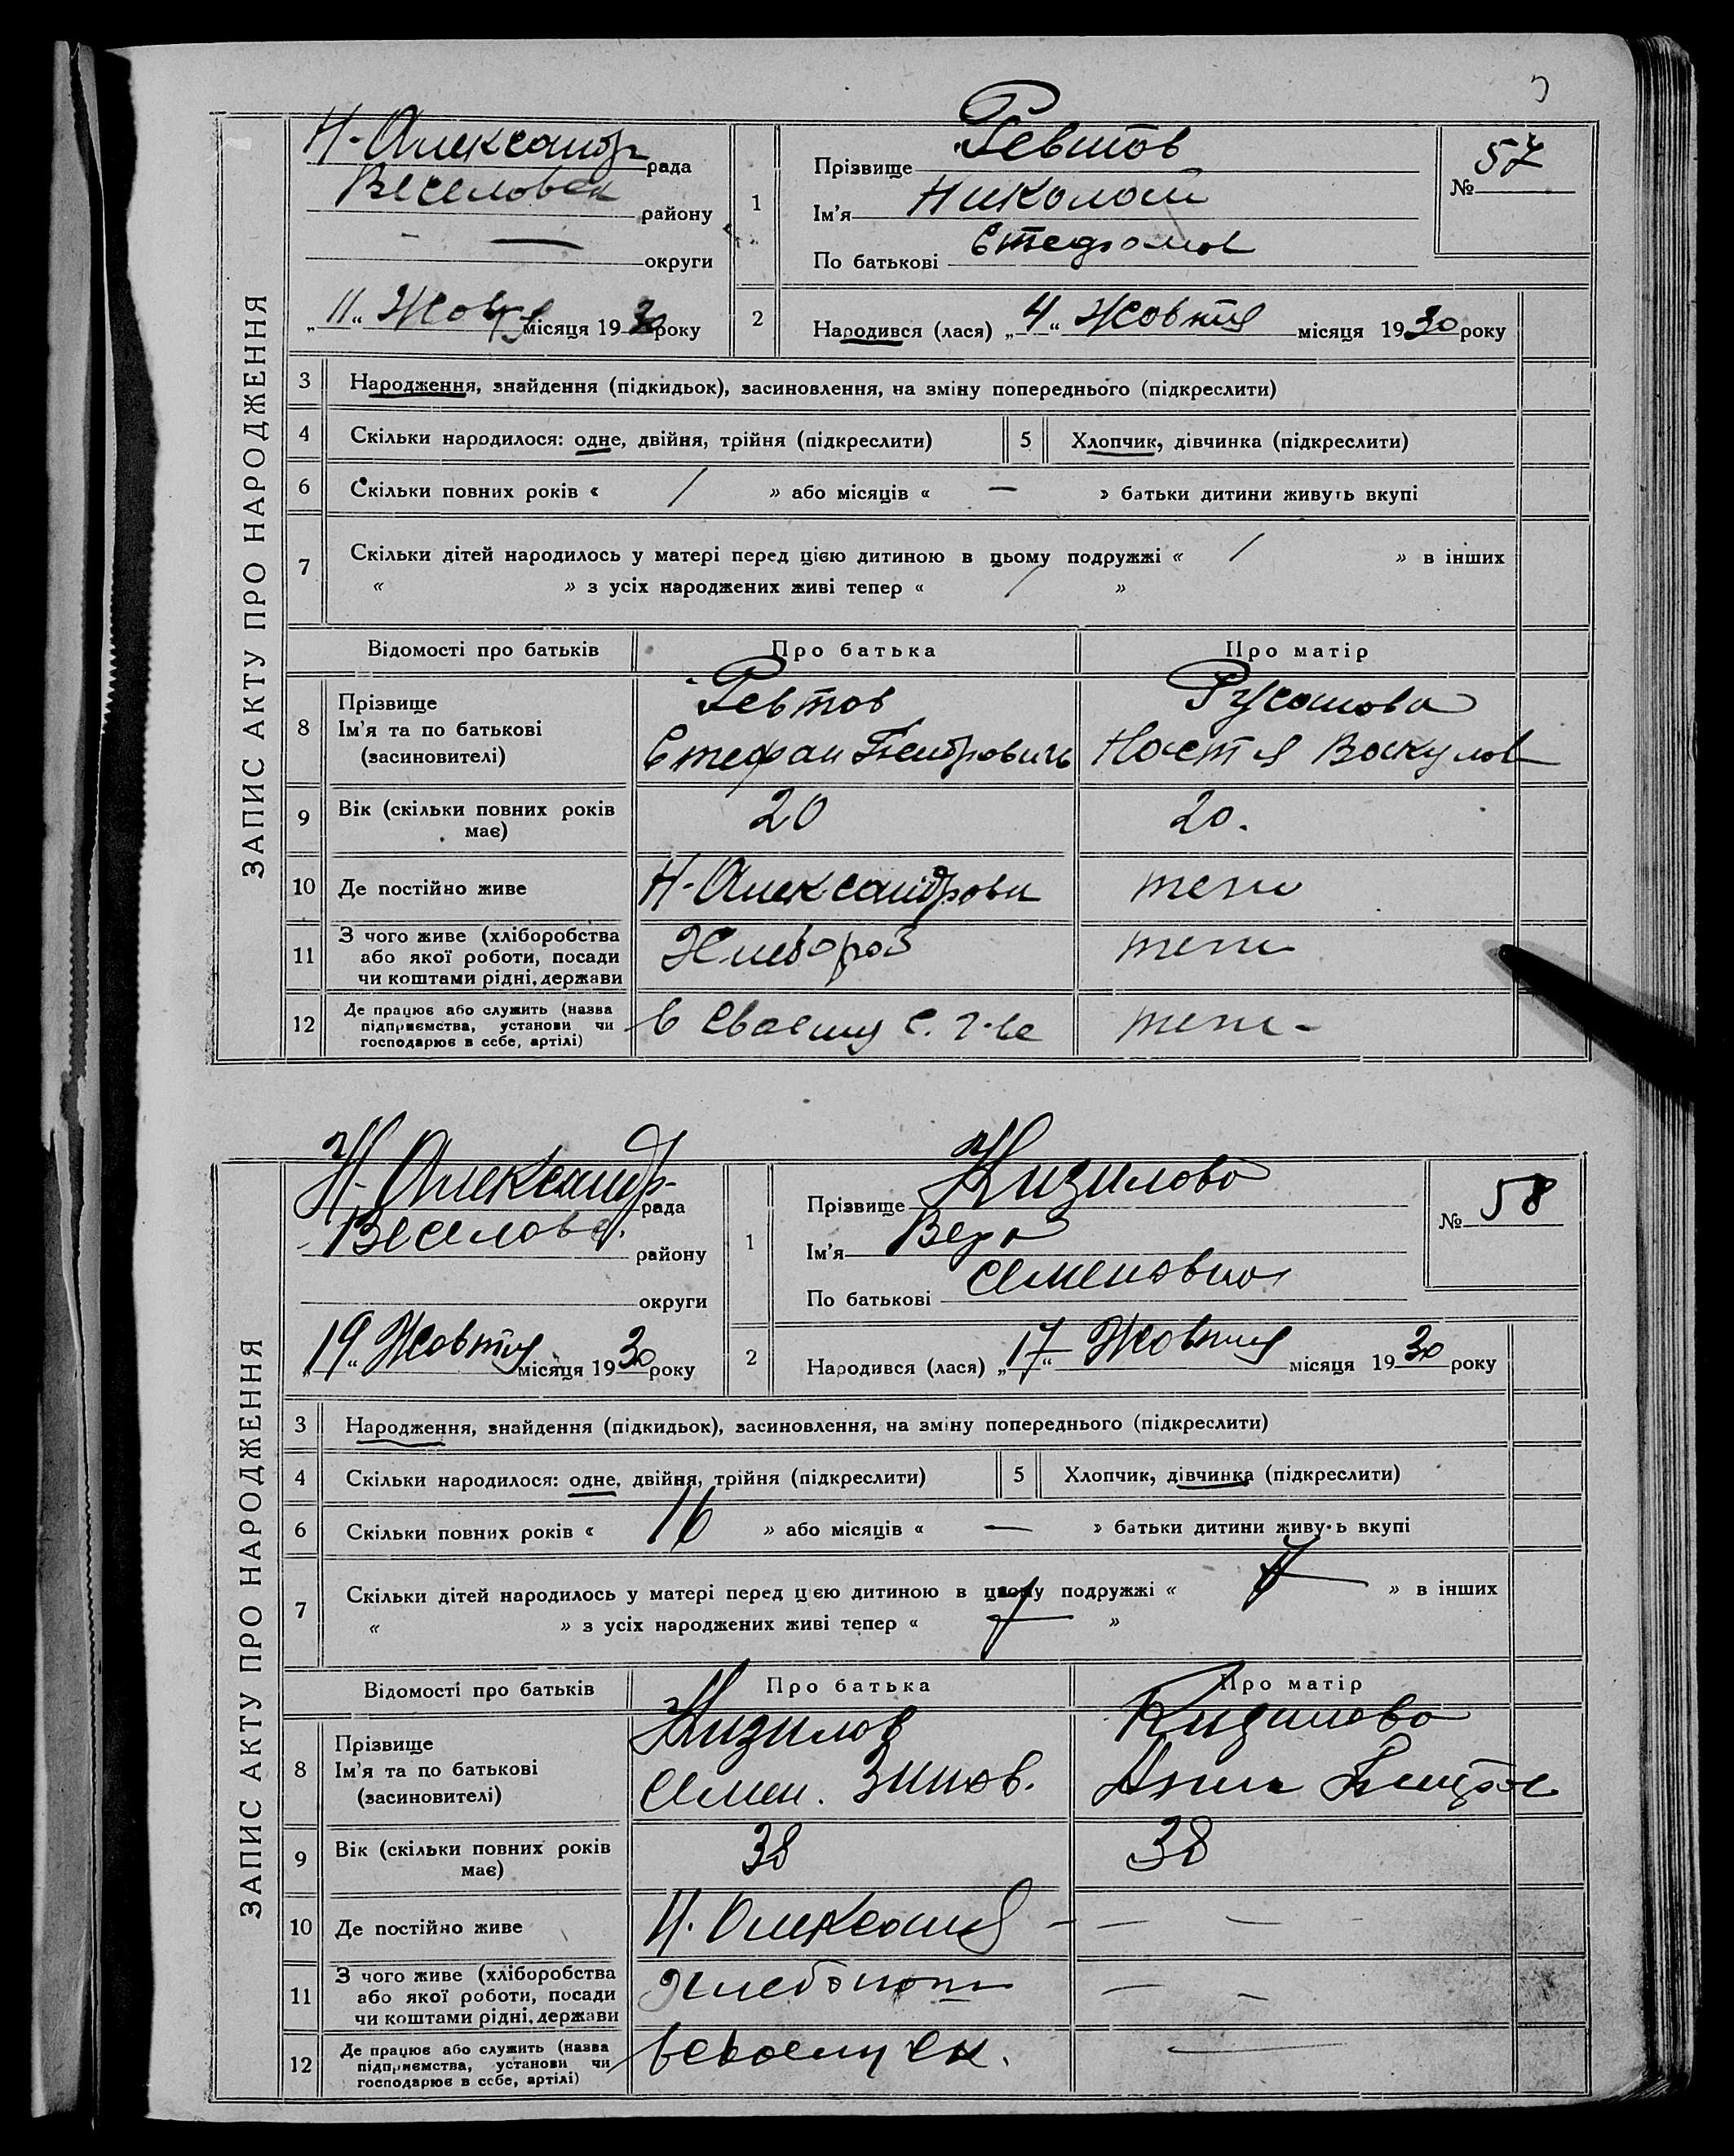 ЗАПИС АКТУ ПРО НАРОДЖЕННЯ
Н-Александр рада
Веселовск району
— округи
„11“ Жовт місяця 1930 року
1
Прізвище Ревтов
Ім'я Николай
По батькові Стефанов
№ 57
2
Народився (лася) „4“ Жовтня місяця 1930 року
3 Народження, знайдення (підкидьок), засиновлення, на зміну попереднього (підкреслити)
4 Скільки народилося: одне, двійня, трійня (підкреслити)
5 Хлопчик, дівчинка (підкреслити)
6 Скільки повних років « / » або місяців « — » батьки дитини живуть вкупі
7 Скільки дітей народилось у матері перед цією дитиною в цьому подружжі « / » в інших
« » з усіх народжених живі тепер « / »
Відомості про батьків Про батька Про матір
8
Прізвище
Ім'я та по батькові
(засиновителі)
Ревтов
Стефан Петрович
Русанова
Настя Вакулов
9
Вік (скільки повних років
має)
20
20.
10 Де постійно живе
Н-Александровк
теж
11
З чого живе (хліборобства
або якої роботи, посади
чи коштами рідні, держави
Хлебороб
теж
12
Де працює або служить (назва
підприємства, установи чи
господарює в себе, артілі)
в своему с. г-ве
теж -
ЗАПИС АКТУ ПРО НАРОДЖЕННЯ
Н-Александр- рада
Веселовс. району
округи
„19“ Жовтня місяця 1930 року
1
Прізвище Кизилова
Ім'я Вера
По батькові Семеновна
№ 58
2
Народився (лася) „17“ Жовтня місяця 1930 року
3 Народження, знайдення (підкидьок), засиновлення, на зміну попереднього (підкреслити)
4 Скільки народилося: одне, двійня, трійня (підкреслити)
5 Хлопчик, дівчинка (підкреслити)
6 Скільки повних років « 16 » або місяців « — » батьки дитини живуть вкупі
7 Скільки дітей народилось у матері перед цією дитиною в цьому подружжі « » в інших
« » з усіх народжених живі тепер « 7 »
Відомості про батьків Про батька Про матір
8
Прізвище
Ім'я та по батькові
(засиновителі)
Кизилов
Семен. Зинов.
Кизилова
Анна
9
Вік (скільки повних років
має)
38
38
10 Де постійно живе
Н. Александ — — — -
11
З чого живе (хліборобства
або якої роботи, посади
чи коштами рідні, держави
— -
12
Де працює або служить (назва
підприємства, установи чи
господарює в себе, артілі)
в своему
—